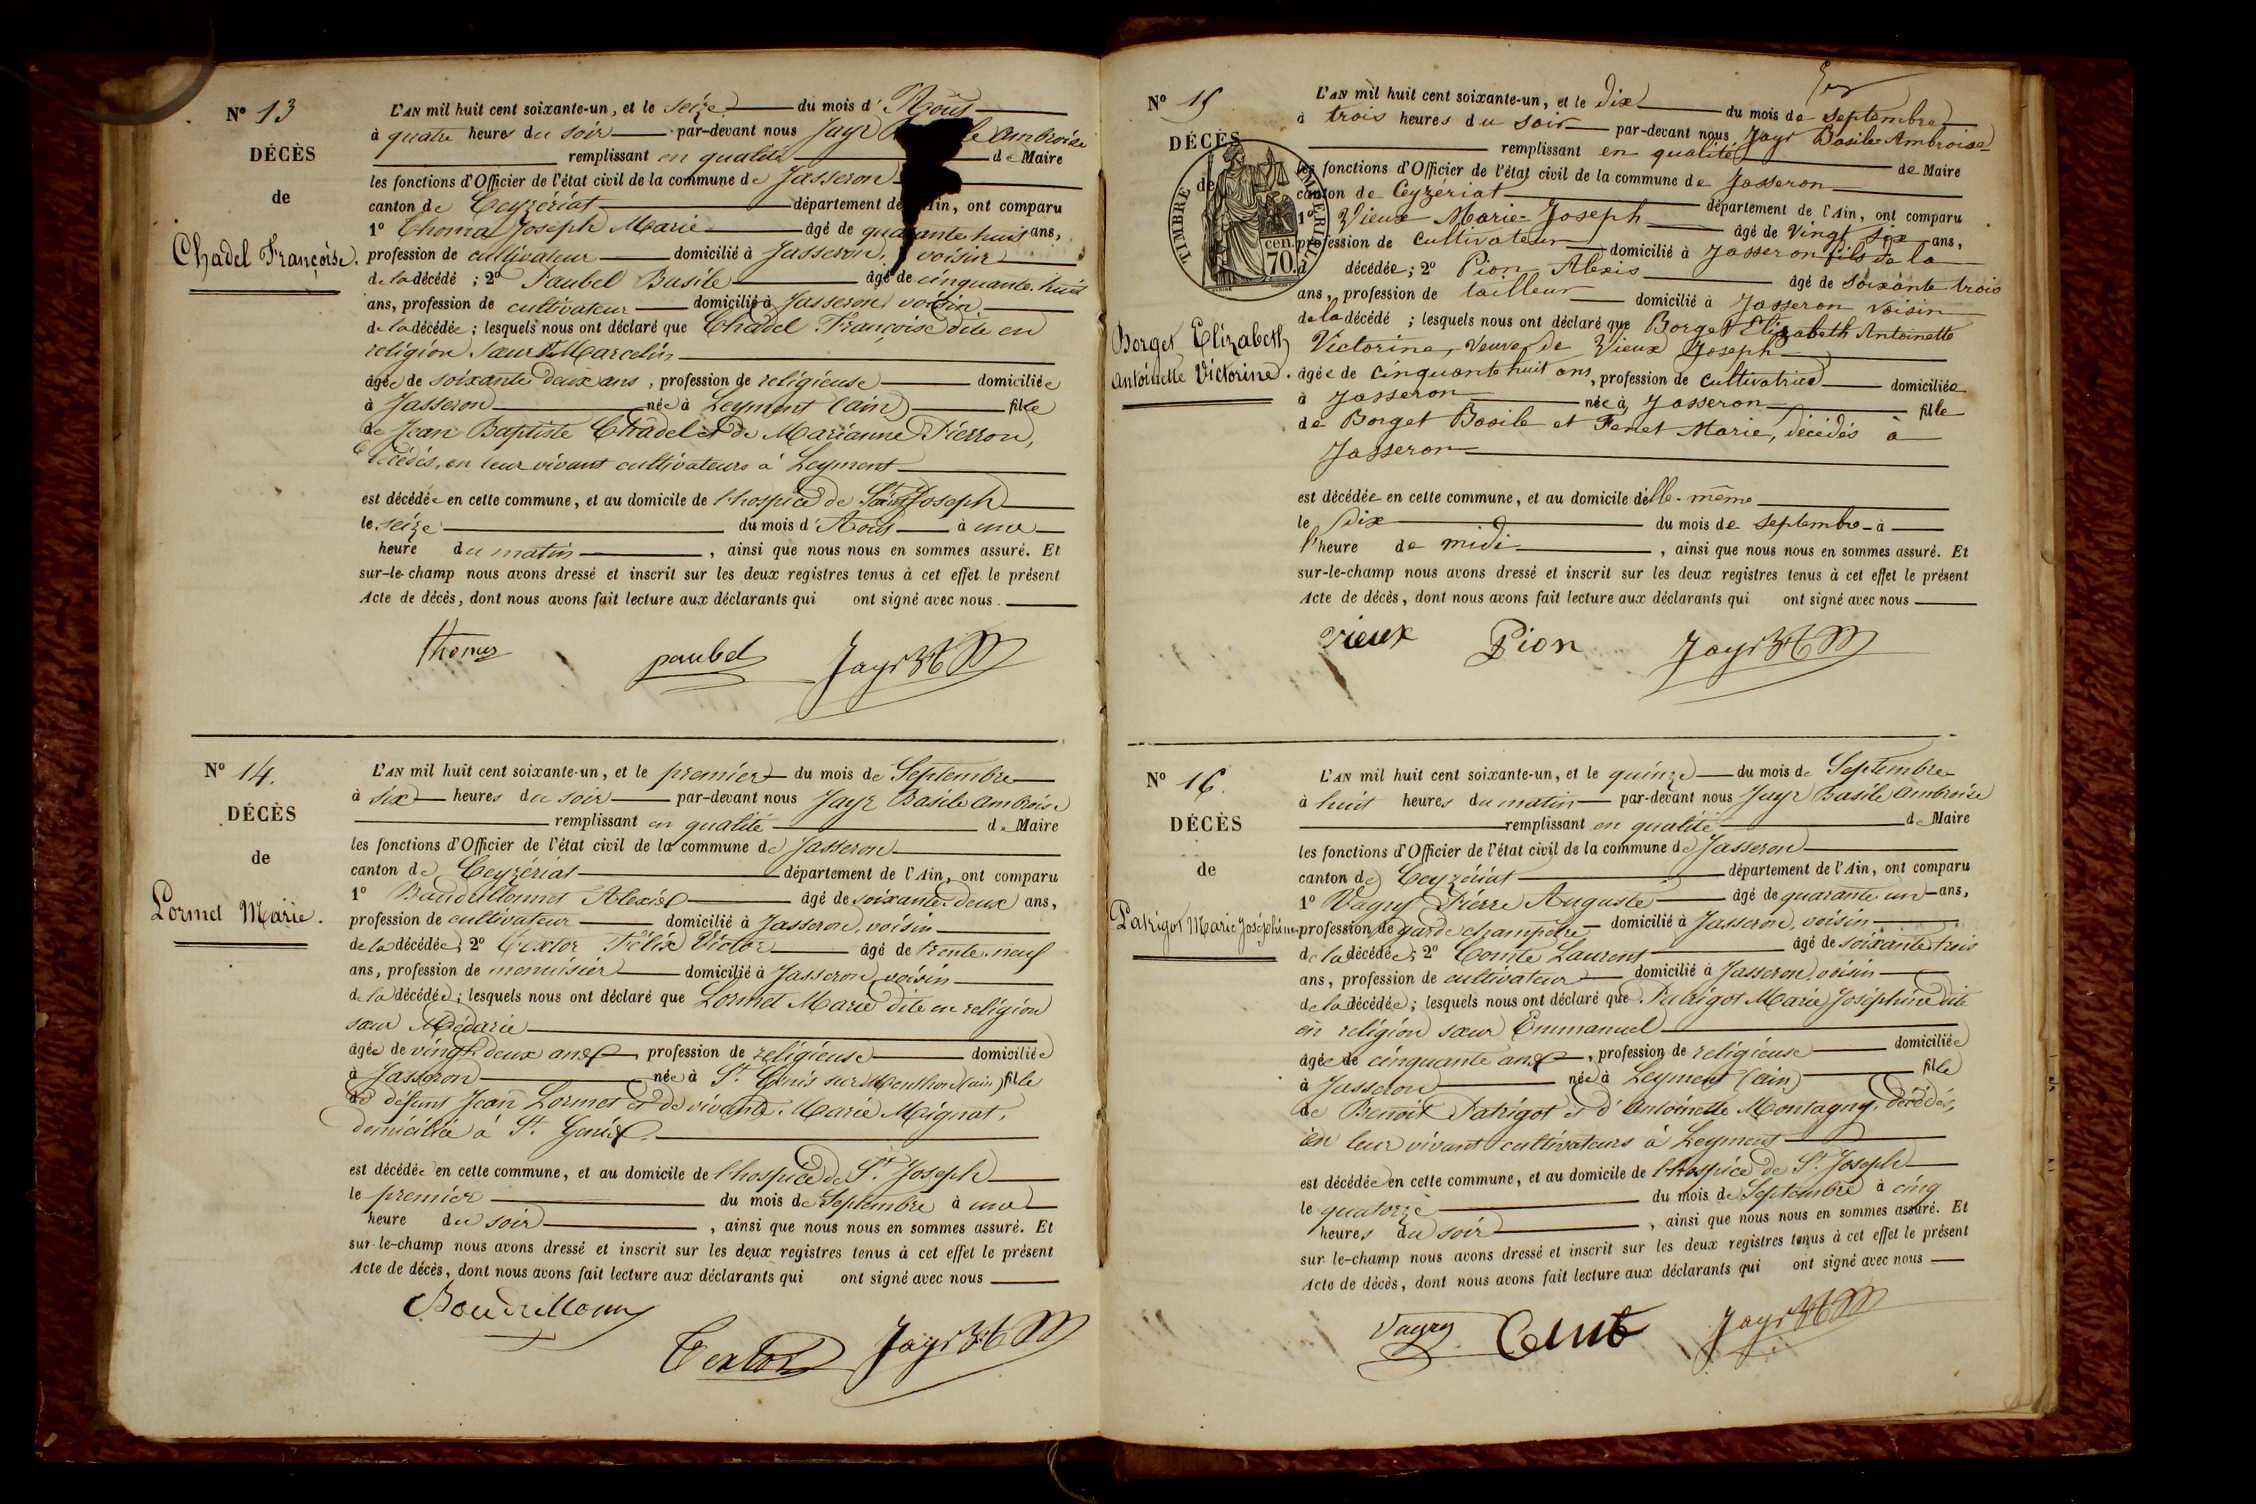 N° 13
DÉCÈS
de
Chadel Françoise.
L'AN mil huit cent soixante-un, et le seize du mois d'Août
à quatre heures du soir par-devant nous Jayr Ambroise
remplissant en qualité de Maire
les fonctions d'Officier de l'état civil de la commune de Jasseron
canton de Ceyzériat département de l'Ain, ont comparu
1° Thomas Joseph Marie âgé de quarante huit ans,
profession de cultivateur domicilié à Jasseron, voisin
de la décédé ; 2° Paubel Basile âgé de cinquante huit
ans, profession de cultivateur domicilié à Jasseron, voisin
de la décédée ; lesquels nous ont déclaré que Chadel Françoise dite en
religion Sœur St Marcelin
âgée de soixante deux ans, profession de religieuse domiciliée
à Jasseron née à Leyment (ain) fille
de Jean Baptiste Chadel et de Marianne Pierron,
décédés, en leur vivant cultivateurs à Leyment
est décédée en cette commune, et au domicile de l'hospice de Saint Joseph
le seize du mois d'Août à une
heure du matin, ainsi que nous nous en sommes assuré. Et
sur-le-champ nous avons dressé et inscrit sur les deux registres tenus à cet effet le présent
Acte de décès, dont nous avons fait lecture aux déclarants qui ont signé avec nous.
Thomas paubel Jayr
N° 14.
DÉCÈS
de
Lormet Marie.
L'AN mil huit cent soixante-un, et le premier du mois de Septembre
à six heures du soir par-devant nous Jayr Basile ambroise
remplissant en qualité de Maire
les fonctions d'Officier de l'état civil de la commune de Jasseron
canton de Ceyzériat département de l'Ain, ont comparu
1° Alexis âgé de soixante deux ans,
profession de cultivateur domicilié à Jasseron, voisin
de la décédée ; 2° Textor Félix Victor âgé de trente neuf
ans, profession de menuisier domicilié à Jasseron, voisin
de la décédée ; lesquels nous ont déclaré que Lormet Marie dite en religion
sœur Médarie
âgée de vingt deux ans profession de religieuse domiciliée
à Jasseron née à St. Genis sur Menthon (ain) fille
de défunt Jean Lormet et de vivante Marie Meignat,
domiciliée à St. Genis.
est décédée en cette commune, et au domicile de l'hospice de St. Joseph
le premier du mois de Septembre à une
heure du soir, ainsi que nous nous en sommes assuré. Et
sur-le-champ nous avons dressé et inscrit sur les deux registres tenus à cet effet le présent
Acte de décès, dont nous avons fait lecture aux déclarants qui ont signé avec nous
Textor Jayr
N° 15
DÉCÈS
de
TIMBRE IMPÉRIAL
70 cen.
Borget Elizabeth
Antoinette Victorine.
L'AN mil huit cent soixante-un, et le dix du mois de septembre
à trois heures du soir par-devant nous Jayr Basile Ambroise
remplissant en qualité de Maire
les fonctions d'Officier de l'état civil de la commune de Jasseron
canton de Ceyzériat département de l'Ain, ont comparu
1° Vieux Marie-Joseph âgé de vingt six ans,
profession de cultivateur domicilié à Jasseron fils de la
décédée ; 2° Pion Alexis âgé de soixante trois
ans, profession de tailleur domicilié à Jasseron voisin
de la décédé ; lesquels nous ont déclaré que Borget Elizabeth Antoinette
Victorine, veuve de Vieux Joseph
âgée de cinquante huit ans, profession de cultivatrice domiciliée
à Jasseron née à Jasseron fille
de Borget Basile et Fenet Marie, décédés à
Jasseron
est décédée en cette commune, et au domicile d'elle-même
le dix du mois de septembre à
l'heure de midi, ainsi que nous nous en sommes assuré. Et
sur-le-champ nous avons dressé et inscrit sur les deux registres tenus à cet effet le présent
Acte de décès, dont nous avons fait lecture aux déclarants qui ont signé avec nous
Vieux Pion Jayr
N° 16.
DÉCÈS
de
Patrigot Marie Joséphine
L'AN mil huit cent soixante-un, et le quinze du mois de Septembre
à huit heures du matin par-devant nous Jayr Basile Ambroise
remplissant en qualité de Maire
les fonctions d'Officier de l'état civil de la commune de Jasseron
canton de Ceyzériat département de l'Ain, ont comparu
1° Vagry Pierre Auguste âgé de quarante un ans,
profession de garde champêtre domicilié à Jasseron, voisin
de la décédée ; 2° Comte Laurent âgé de soixante trois
ans, profession de cultivateur domicilié à Jasseron, voisin
de la décédée ; lesquels nous ont déclaré que Patrigot Marie Joséphine dite
en religion sœur Emmanuel
âgée de cinquante ans, profession de religieuse domiciliée
à Jasseron née à Leyment (ain) fille
de Benoit Patrigot et d'Antoinette Montagny, décédés,
en leur vivant cultivateurs à Leyment
est décédée en cette commune, et au domicile de l'hospice de St. Joseph
le quatorze du mois de Septembre à cinq
heures du soir, ainsi que nous nous en sommes assuré. Et
sur-le-champ nous avons dressé et inscrit sur les deux registres tenus à cet effet le présent
Acte de décès, dont nous avons fait lecture aux déclarants qui ont signé avec nous
Vagry Jayr